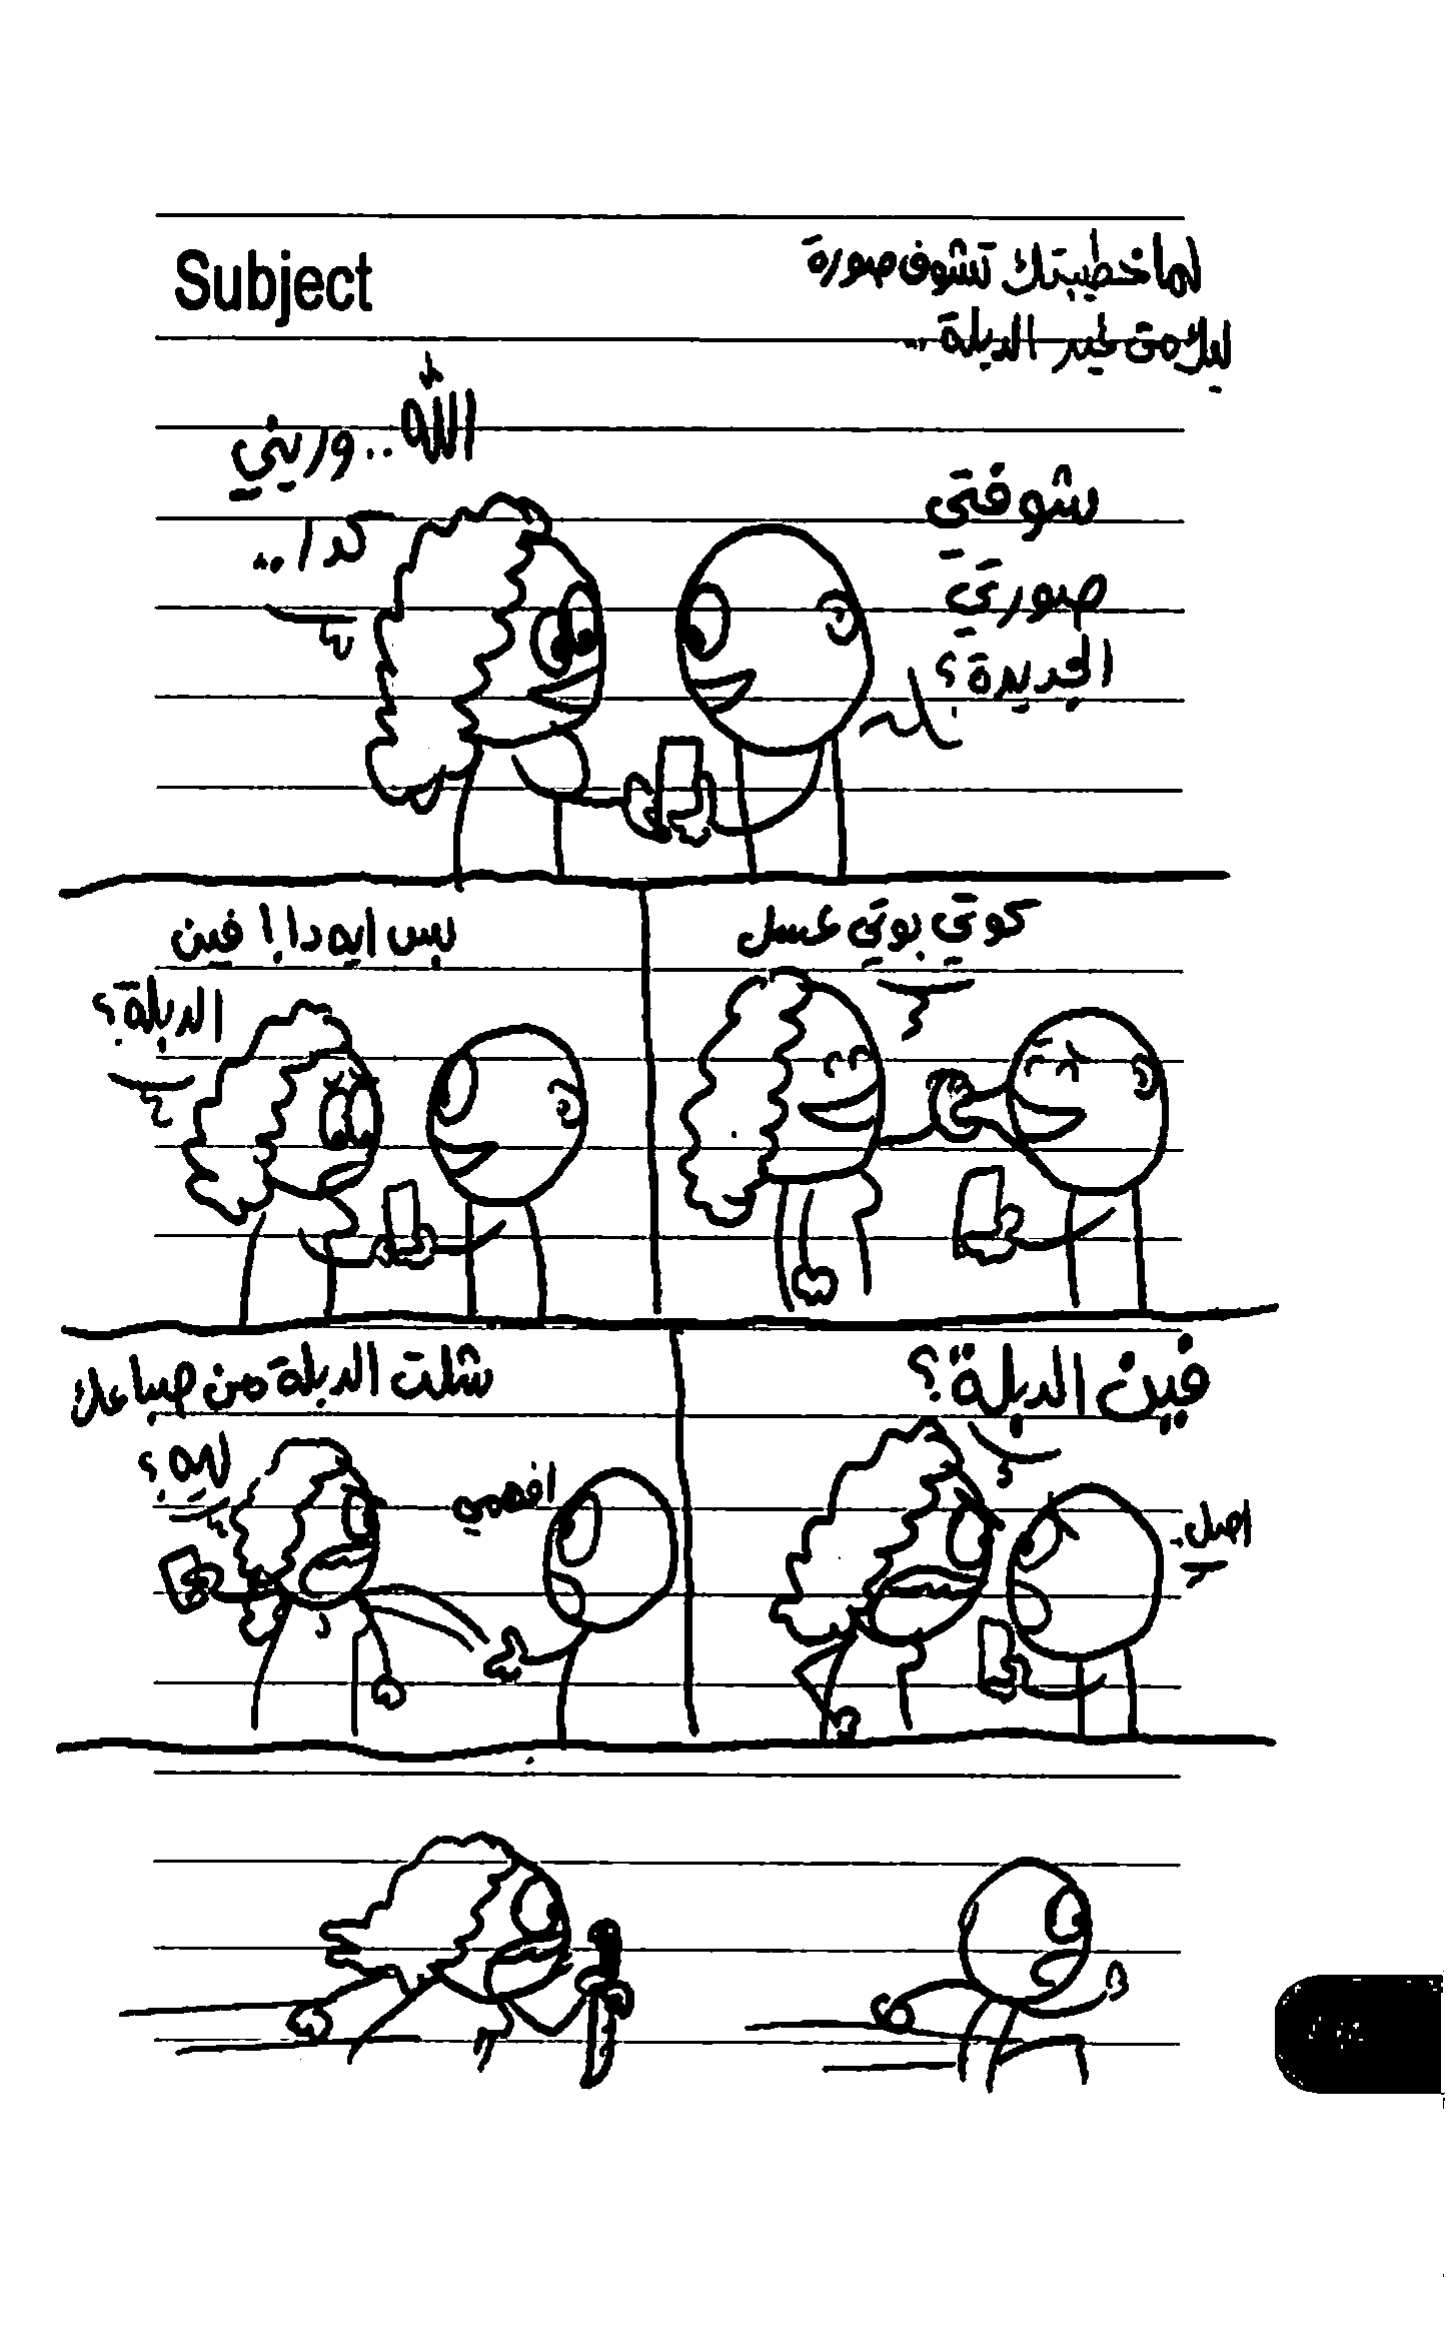 Subject
لما خطيبتك تشوف صورة
ليك من غير الدبلة ..
شوفتي
صورتي
الجديدة؟
الله .. وريني
كدا ..
كوتي بوتي عسل
بس ايه دا! فين
الدبلة؟
فين الدبلة؟
اصل.
شلت الدبلة من صباعك
ليه؟
افهمي